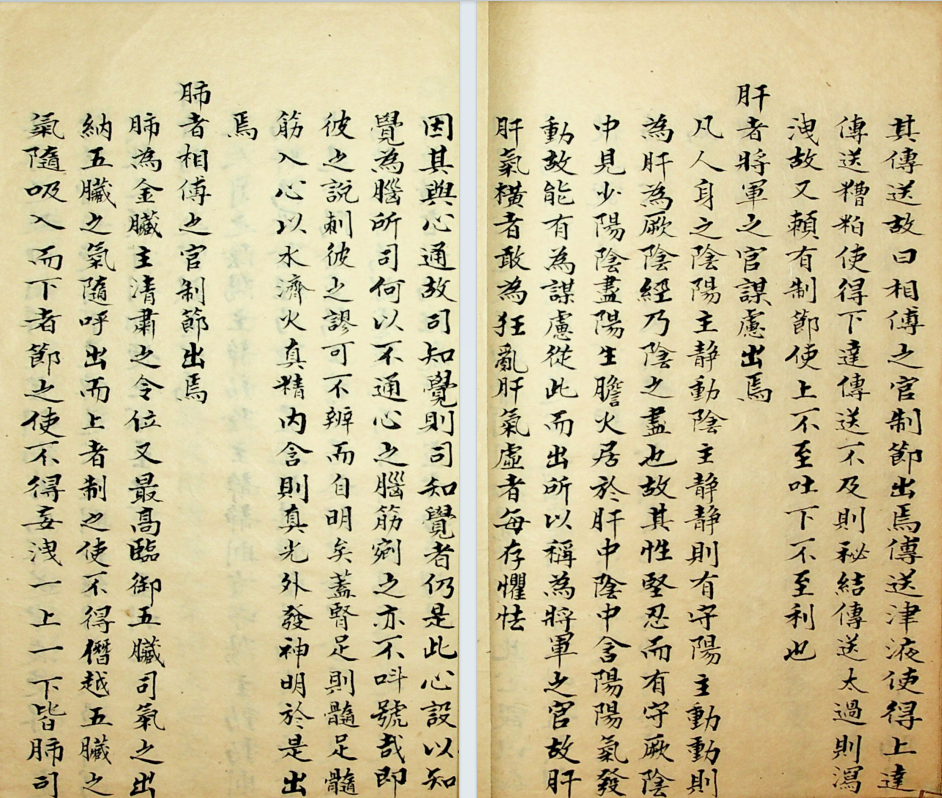 因其與心通故司知覺則司知覺者仍是此心設以知
覺為腦所司何以不通心之腦筋剜之亦不呌號哉即
彼之說刺彼之謬可不辨而自明矣蓋腎足則髓足髓
筋入心以水濟火真精内含則真光外發神明於是出
焉
肺者相傅之官制節出焉
肺為金臟主清肅之令位又最高臨御五臟司氣之出
納五臟之氣隨呼出而上者制之使不得僭越五臟之
氣隨吸入而下者節之使不得妄洩一上一下皆肺司
其傳送故曰相傅之官制節出焉傳送津液使得上達
傳送糟粕使得下達傳送不及則秘結傳送太過則瀉
洩故又頼有制節使上不至吐下不至利也
肝者將軍之官謀慮出焉
凡人身之陰陽主静動陰主静静則有守陽主動動則
為肝為厥陰經乃陰之盡也故其性堅忍而有守厥陰
中見少陽陰盡陽生膽火居於肝中陰中含陽陽氣發
動故能有為謀慮從此而出所以稱為將軍之官故肝
肝氣橫者敢為狂亂肝氣虛者每存懼怯